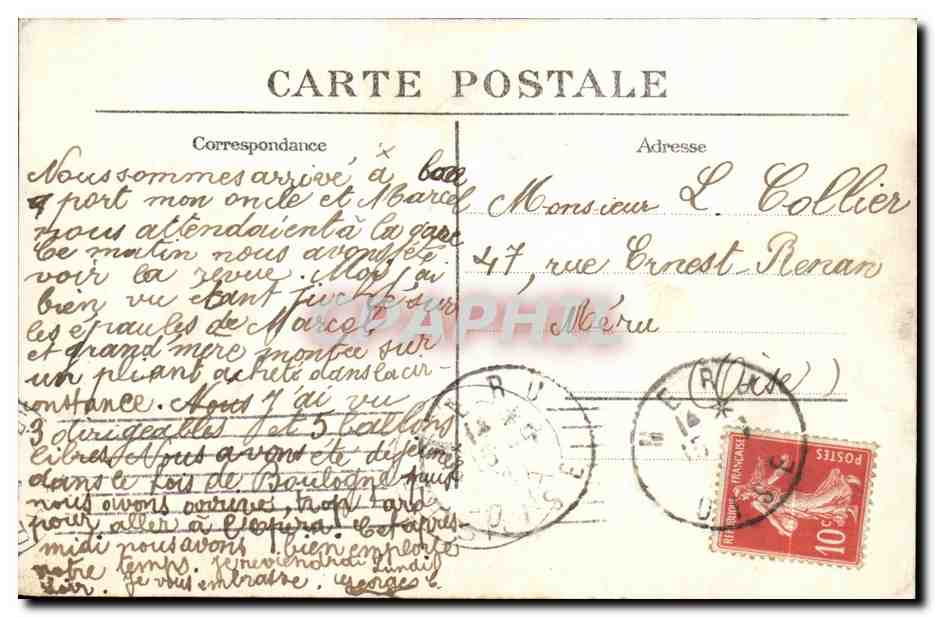 CARTE POSTALE
Correspondance
Nous sommes arrivé à bon
port mon oncle et Marcel
nous attendaient à la gare
Ce matin nous avons été
voir la revue. Moi j'ai
bien vu étant juché sur
les épaules de Marcel
et grand'mère montée sur
un pliant acheté dans la cir-
constance. Nous
3 dirigeables et 5 ballons
libres. Nous avons été déjeuner
dans le bois de Boulogne puis
nous avons arrivé trop
pour aller à l'opéra. Cet après-
midi nous avons bien employé
notre temps. Je reviendrai Lundi
soir. Je vous embrasse. Georges
Adresse
Monsieur L. Collier
47, rue Ernest-Renan
Méru
(Oise)
MERU
OISE
MERU
OISE
REPUBLIQUE FRANÇAISE
POSTES
10c
CPAPHIL